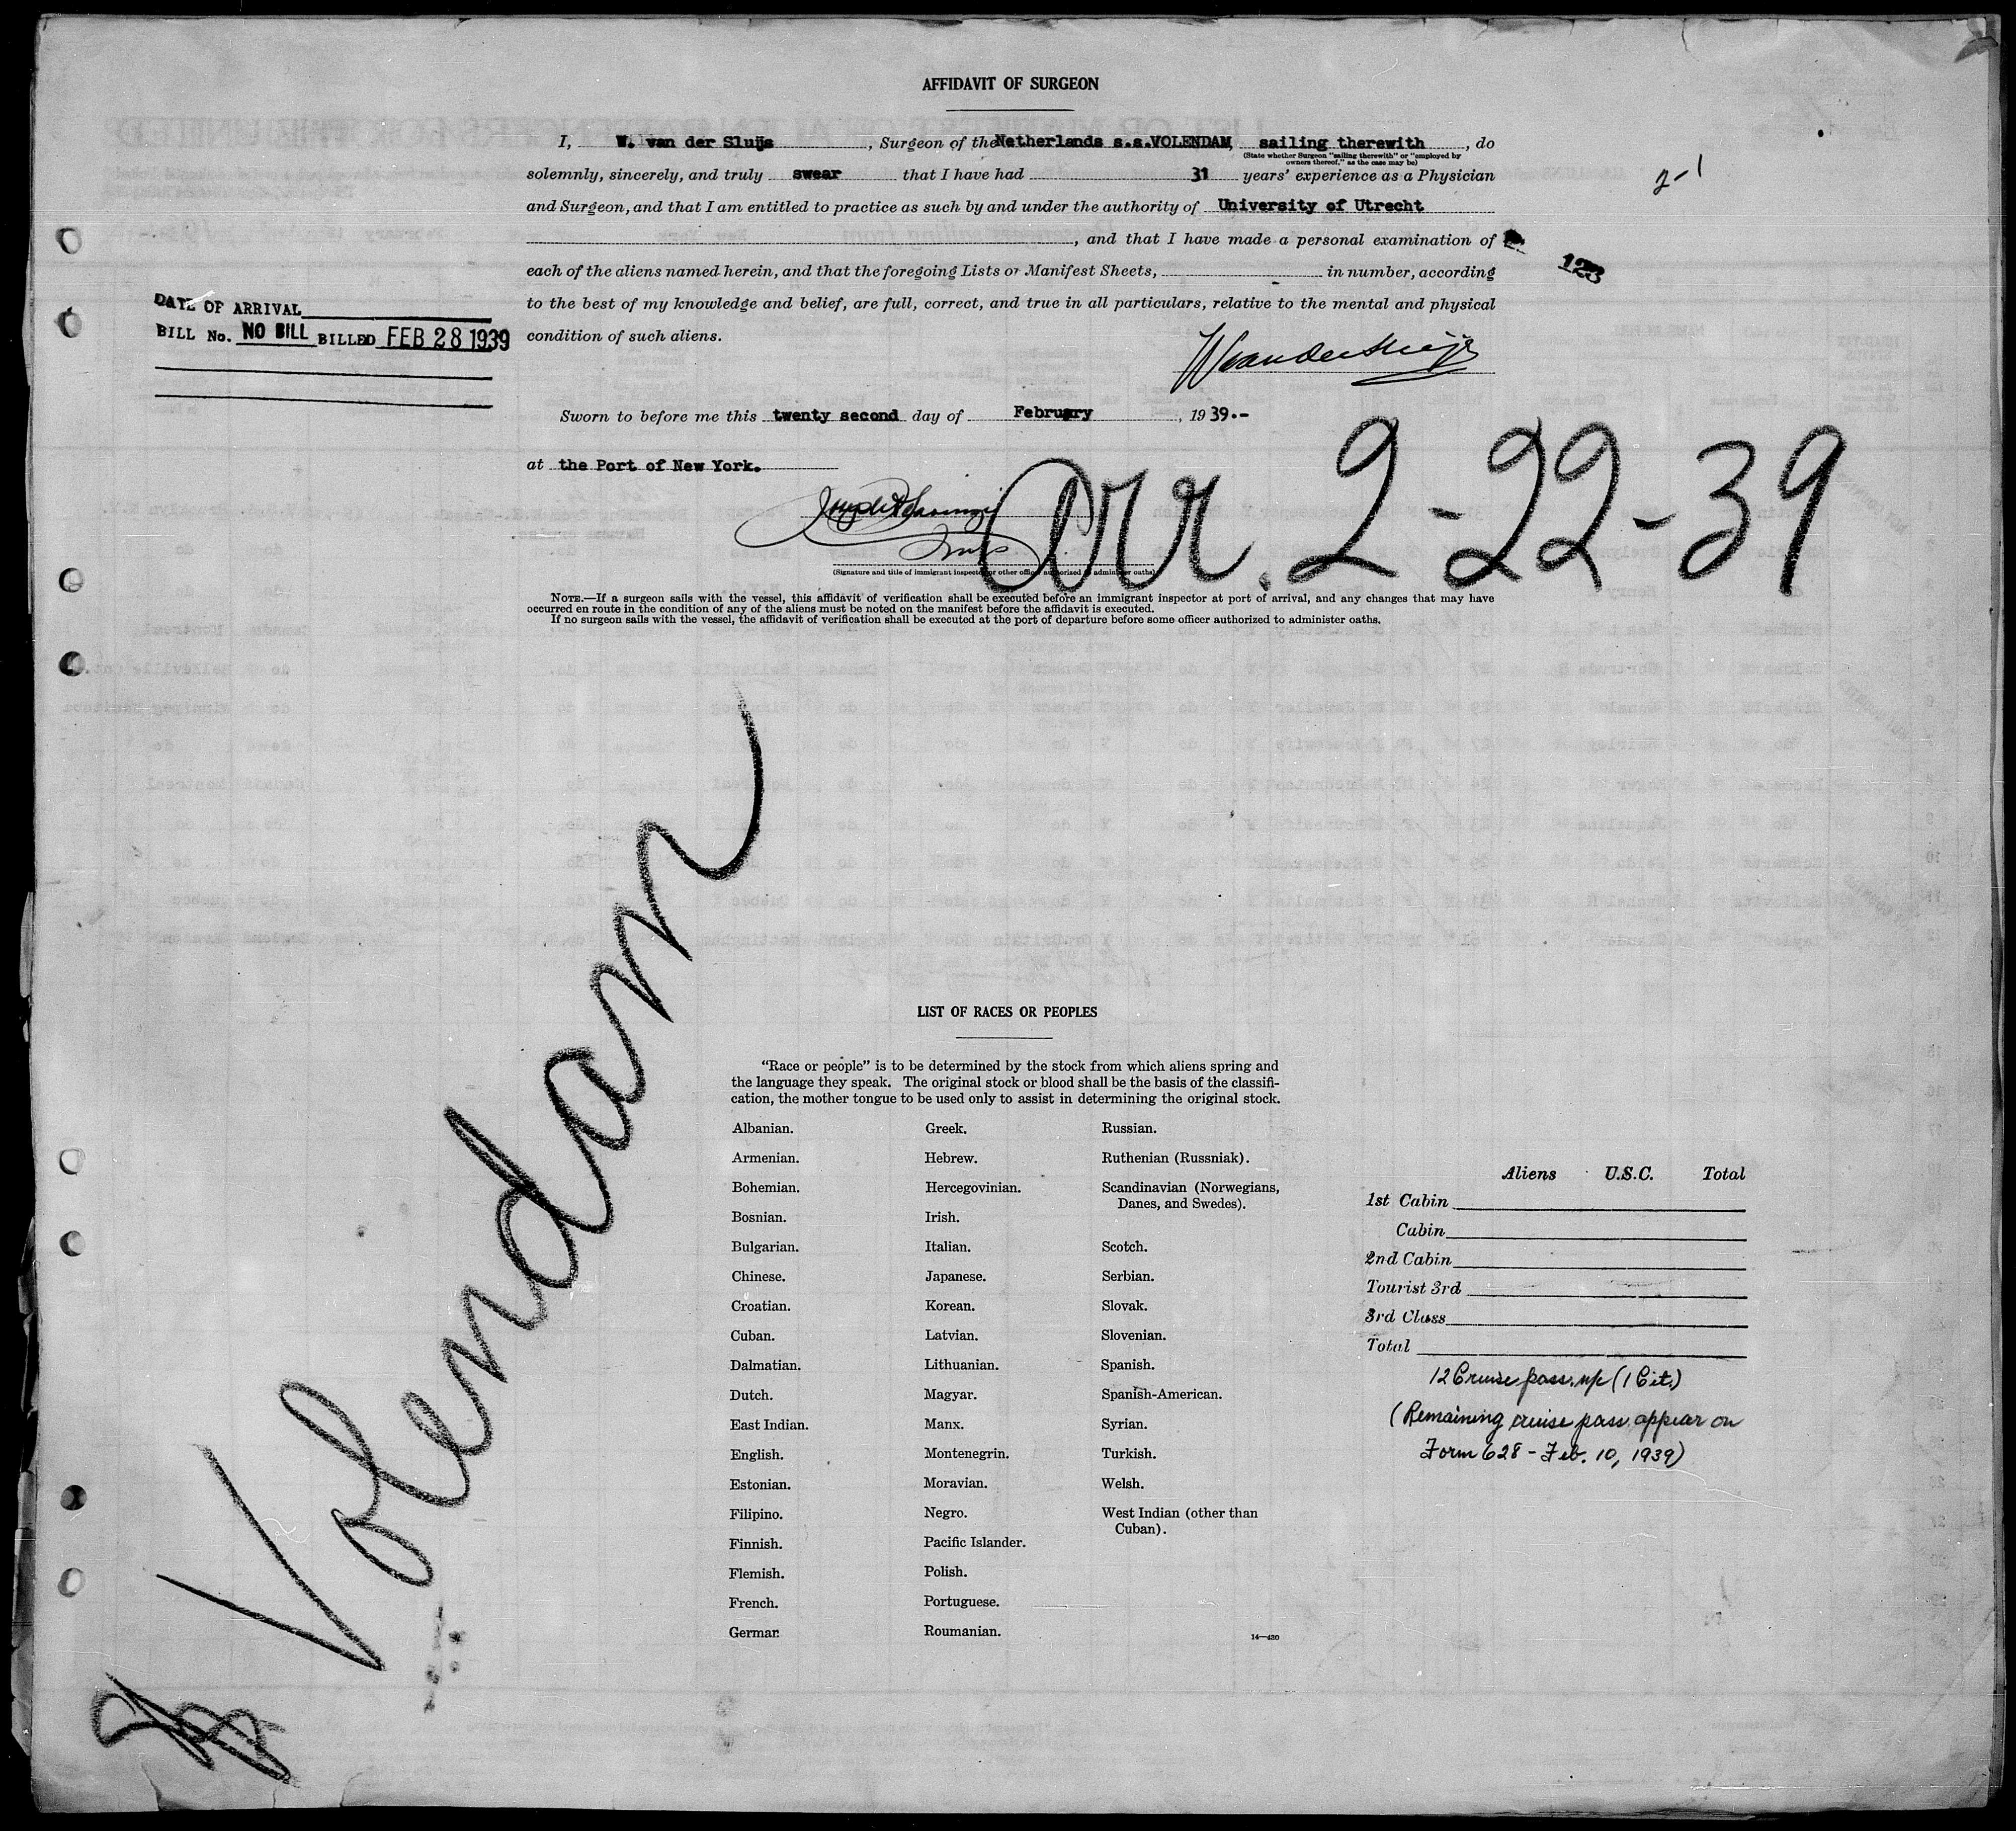 AFFIDAVIT OF SURGEON
I, W. van der Sluijs, Surgeon of the Netherlands s.s.VOLENDAM, sailing therewith, do
(State whether Surgeon "sailing therewith" or "employed by
owners thereof," as the case may be)
solemnly, sincerely, and truly swear that I have had 31 years' experience as a Physician
2-1
and Surgeon, and that I am entitled to practice as such by and under the authority of University of Utrecht
, and that I have made a personal examination of
each of the aliens named herein, and that the foregoing Lists or Manifest Sheets, in number, according
123
to the best of my knowledge and belief, are full, correct, and true in all particulars, relative to the mental and physical
condition of such aliens.
DATE OF ARRIVAL
BILL No. NO BILL BILLED FEB 28 1939
WvanderSluijs
Sworn to before me this twenty second day of February, 1939.-
at the Port of New York.
Arr. 2-22-39
(Signature and title of immigrant inspector or other officer authorized to administer oaths)
NOTE.—If a surgeon sails with the vessel, this affidavit of verification shall be executed before an immigrant inspector at port of arrival, and any changes that may have
occurred en route in the condition of any of the aliens must be noted on the manifest before the affidavit is executed.
If no surgeon sails with the vessel, the affidavit of verification shall be executed at the port of departure before some officer authorized to administer oaths.
Volendam
LIST OF RACES OR PEOPLES
"Race or people" is to be determined by the stock from which aliens spring and
the language they speak. The original stock or blood shall be the basis of the classifi-
cation, the mother tongue to be used only to assist in determining the original stock.
Albanian.
Armenian.
Bohemian.
Bosnian.
Bulgarian.
Chinese.
Croatian.
Cuban.
Dalmatian.
Dutch.
East Indian.
English.
Estonian.
Filipino.
Finnish.
Flemish.
French.
German
Greek.
Hebrew.
Hercegovinian.
Irish.
Italian.
Japanese.
Korean.
Latvian.
Lithuanian.
Magyar.
Manx.
Montenegrin.
Moravian.
Negro.
Pacific Islander.
Polish.
Portuguese.
Roumanian.
Russian.
Ruthenian (Russniak).
Scandinavian (Norwegians,
Danes, and Swedes).
Scotch.
Serbian.
Slovak.
Slovenian.
Spanish.
Spanish-American.
Syrian.
Turkish.
Welsh.
West Indian (other than
Cuban).
14—430
Aliens U.S.C. Total
1st Cabin
Cabin
2nd Cabin
Tourist 3rd
3rd Class
Total
12 Cruise pass. (1 Cit.)
(Remaining cruise pass. appear on
Form 628 - Feb. 10, 1939)